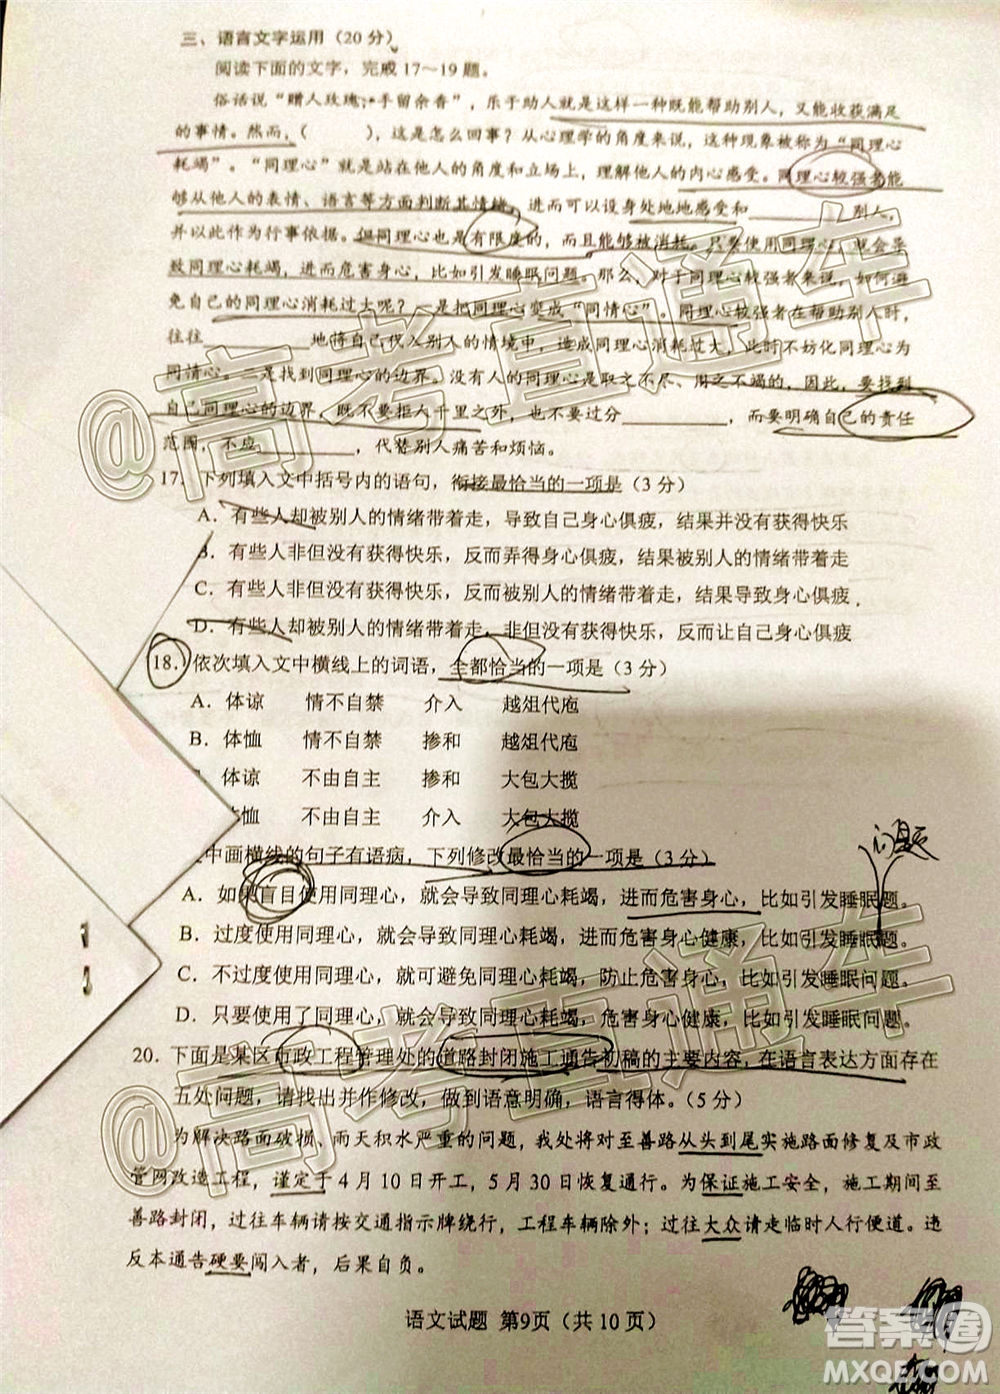 三、语言文字运用（20分）
阅读下面的文字，完成17～19题。
俗话说“赠人玫瑰，手留余香”，乐于助人就是这样一种既能帮助别人，又能收获满足
的事情。然而，（　　　），这是怎么回事？从心理学的角度来说，这种现象被称为“同理心
耗竭”。“同理心”就是站在他人的角度和立场上，理解他人的内心感受。同理心较强者能
够从他人的表情、语言等方面判断其情绪，进而可以设身处地地感受和________别人，
并以此作为行事依据。但同理心也是有限度的，而且能够被消耗。只要使用同理心，就会导
致同理心耗竭，进而危害身心，比如引发睡眠问题。那么，对于同理心较强者来说，如何避
免自己的同理心消耗过大呢？一是把同理心变成“同情心”。同理心较强者在帮助别人时，
往往________地将自己代入别人的情境中，造成同理心消耗过大，此时不妨化同理心为
同情心。二是找到同理心的边界。没有人的同理心是取之不尽、用之不竭的，因此，要找到
自己同理心的边界，既不要拒人千里之外，也不要过分________，而要明确自己的责任
范围，不应________，代替别人痛苦和烦恼。
17．下列填入文中括号内的语句，衔接最恰当的一项是（3分）
A．有些人却被别人的情绪带着走，导致自己身心俱疲，结果并没有获得快乐
B．有些人非但没有获得快乐，反而弄得身心俱疲，结果被别人的情绪带着走
C．有些人非但没有获得快乐，反而被别人的情绪带着走，结果导致身心俱疲
D．有些人却被别人的情绪带着走，非但没有获得快乐，反而让自己身心俱疲
18．依次填入文中横线上的词语，全都恰当的一项是（3分）
A．体谅　情不自禁　介入　越俎代庖
B．体恤　情不自禁　掺和　越俎代庖
体谅　不由自主　掺和　大包大揽
体恤　不由自主　介入　大包大揽
文中画横线的句子有语病，下列修改最恰当的一项是（3分）
问题
A．如果盲目使用同理心，就会导致同理心耗竭，进而危害身心，比如引发睡眠问题。
B．过度使用同理心，就会导致同理心耗竭，进而危害身心健康，比如引发睡眠问题。
C．不过度使用同理心，就可避免同理心耗竭，防止危害身心，比如引发睡眠问题。
D．只要过度使用了同理心，就会导致同理心耗竭，危害身心健康，比如引发睡眠问题。
20．下面是某区市政工程管理处的道路封闭施工通告初稿的主要内容，在语言表达方面存在
五处问题，请找出并作修改，做到语意明确，语言得体。（5分）
为解决路面破损、雨天积水严重的问题，我处将对至善路从头到尾实施路面修复及市政
管网改造工程，谨定于4月10日开工，5月30日恢复通行。为保证施工安全，施工期间至
善路封闭，过往车辆请按交通指示牌绕行，工程车辆除外；过往大众请走临时人行便道。违
反本通告硬要闯入者，后果自负。
语文试题　第9页（共10页）
@高考直通车
@高考直通车
答案圈
MXQE.COM